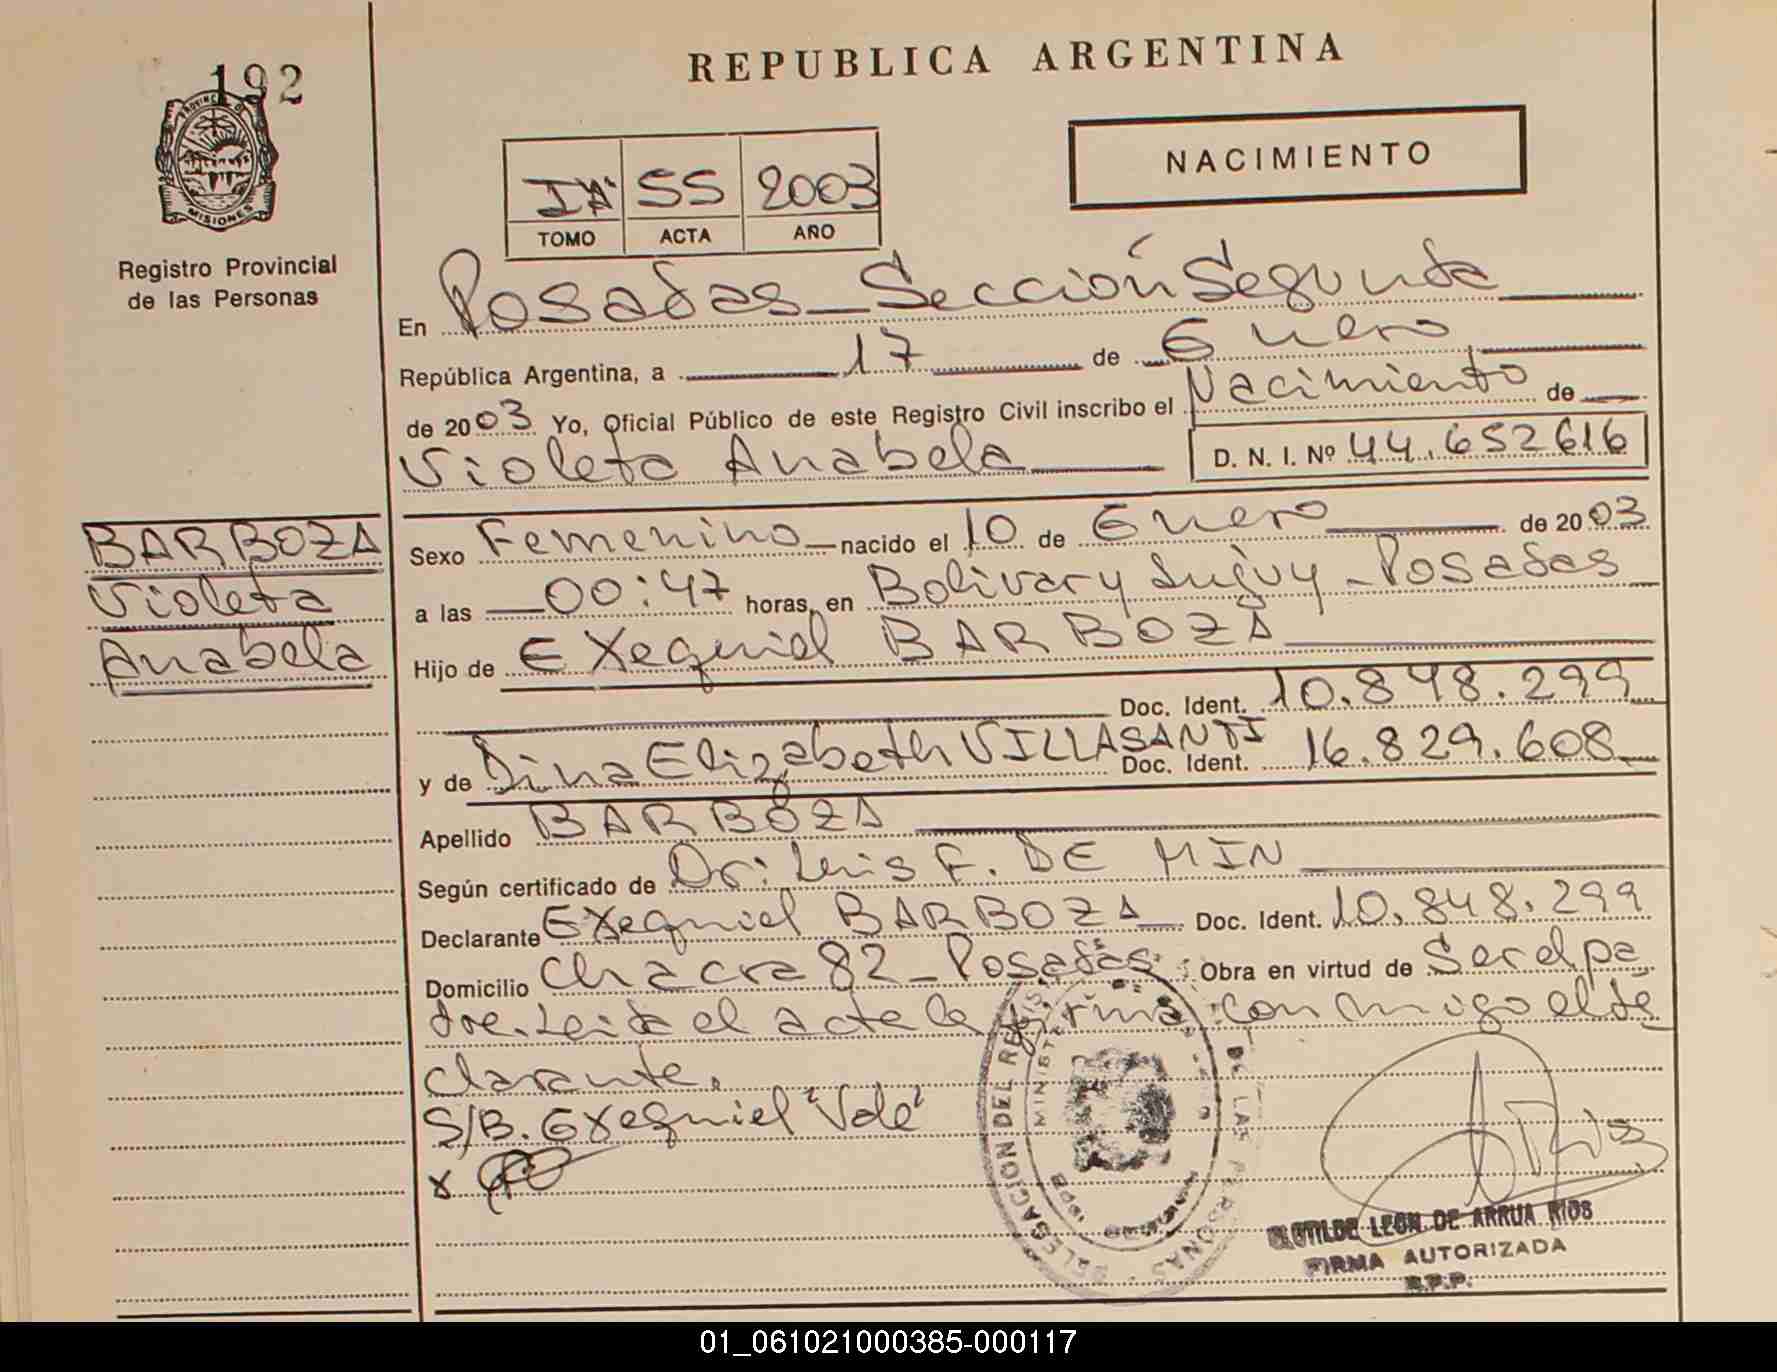 192
REPUBLICA ARGENTINA
PROVINCIA DE
MISIONES
Registro Provincial
de las Personas
NACIMIENTO
55 2003
TOMO ACTA AÑO
En Posadas Sección Segunda
República Argentina, a 17 de Enero
de 2003 Yo, Oficial Público de este Registro Civil inscribo el Nacimiento de
Violeta Anabela D. N. I. Nº 44.652616
BARBOZA
Violeta
Anabela
Sexo Femenino nacido el 10 de Enero de 2003
a las 00:47 horas, en Bolivar y Jujuy - Posadas
Hijo de Exequiel BARBOZA
Doc. Ident. 10.848.299
y de Dina Elizabeth VILLASANTI Doc. Ident. 16.829.608
Apellido BARBOZA
Según certificado de Dr: Luis F. DE MIN
Declarante Exequiel BARBOZA Doc. Ident. 10.848.299
Domicilio Chacra 82 - Posadas Obra en virtud de Ser el pa
dre. Leida el acta la firma conmigo el de
clarante.
S/B. Exequiel "Vale"
x
DELEGACION DEL REGISTRO DE LAS PERSONAS
CLOTILDE LEON DE ARRUA RIOS
FIRMA AUTORIZADA
R.P.P.
01_061021000385-000117